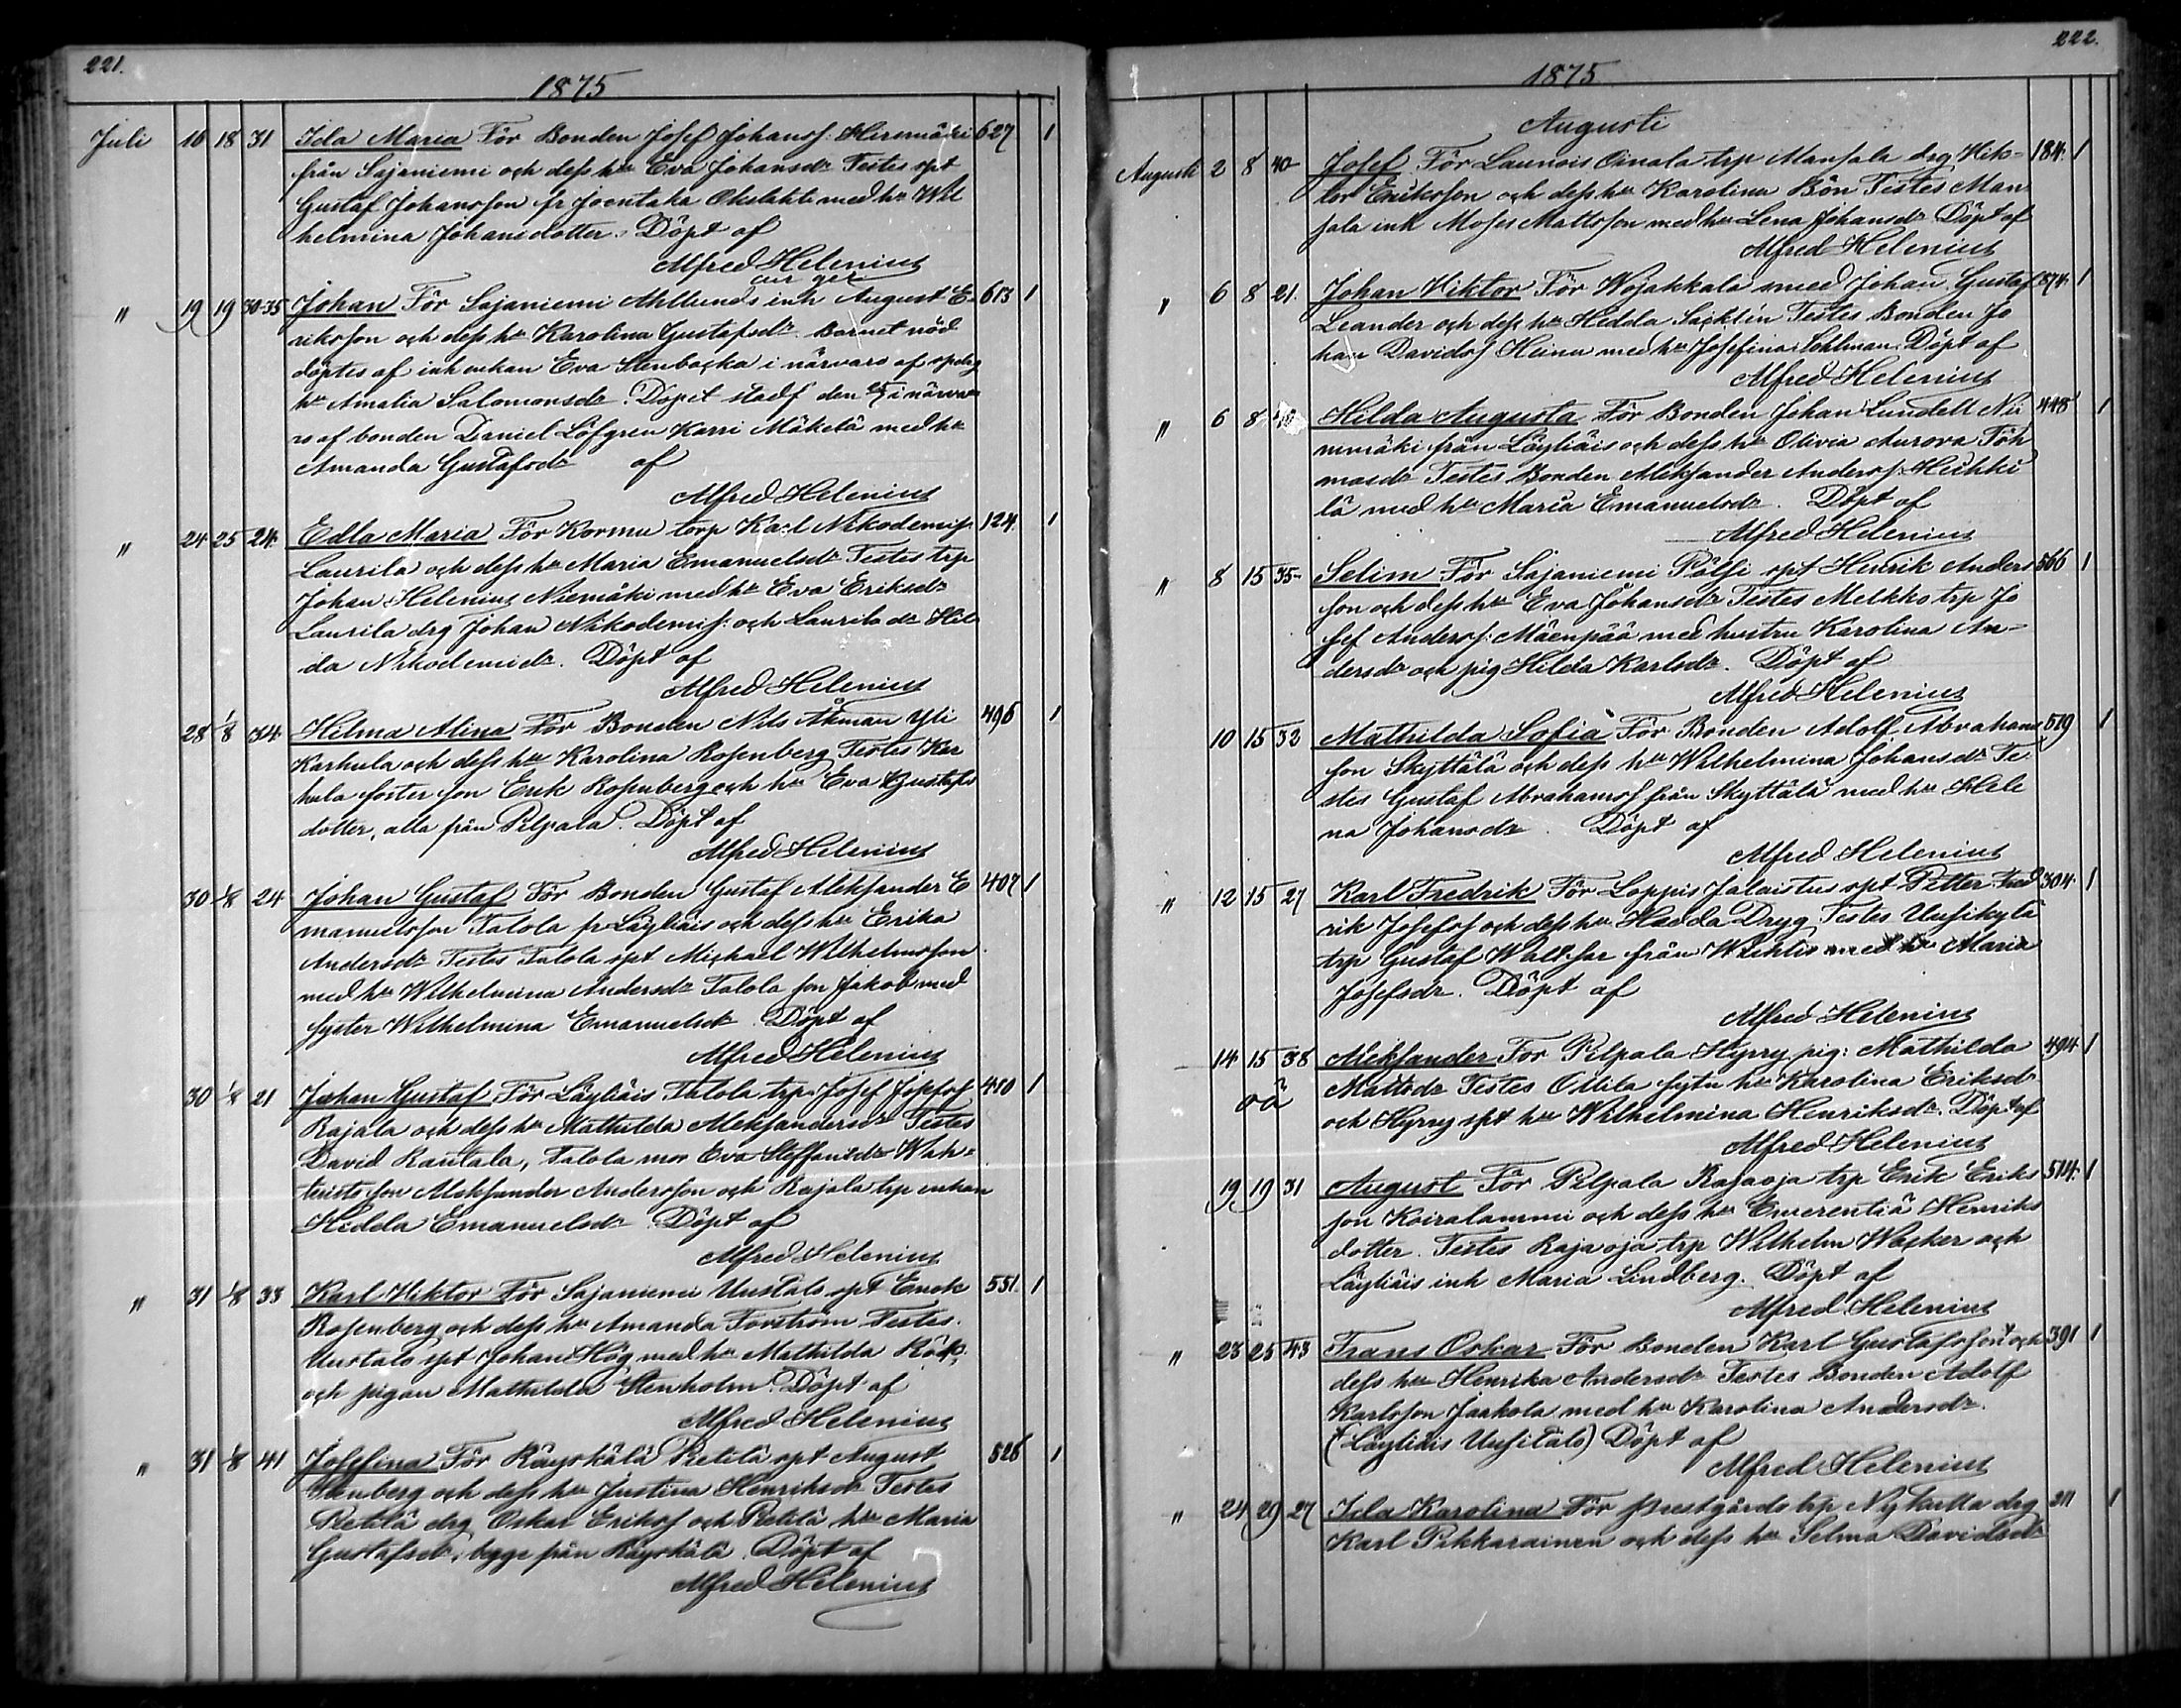 221.
1875
Juli 16 18 31 Ida Maria För Bonden Josef Johanss: Hiiremäki 627 1
från Sajaniemi och dess hu Eva Johansdr Testes spt
Gustaf Johansson fr Joentaka med hu Wil
helmina Johansdotter. Döpt af
Alfred Helenius
" 19 19 30-35 Johan För Sajaniemi Ahllunds inh August E- 613 1
riksson och dess hu Karolina Gustafsdr. Barnet nöd
döptes af inh enkan Eva Stenbacka i närvaro af
hu Amalia Salomonsdr. Dopet stadf den i närva
ro af bonden Daniel Löfgren Karri Mäkelä med hu
Amanda Gustafsdr af
Alfred Helenius
" 24 25 24. Edla Maria För Kormu torp Karl Nikodemiss. 124. 1
Laurila och dess hu Maria Emanuelsdr Testes trp
Johan Helenius Niemäki med hu Eva Eriksdr
Laurila drg Johan Nikodemiss: och Laurila dr Hil
da Nikodemidr. Döpt af
Alfred Helenius
28 1/8 34 Hilma Alina För Bonden Nils Åkman Yli 496 1
Karhula och dess hu Karolina Rosenberg Testes Kar
hula foster son Erik Rosenberg och hu Eva Gustafs
dotter, alla från Pilpala. Döpt af
Alfred Helenius
30 1/8 24 Johan Gustaf För Bonden Gustaf Aleksander E 407 1
manuelsson Talola fr Läyliäis och dess hu Erika
Andersdr Testes Talola spt Michael Wilhelmsson
med hu Wilhelmina Andersdr Talola son Jakob med
syster Wilhelmina Emanuelsdr. Döpt af
Alfred Helenius
30 1/8 21 Johan Gustaf För Läyliäis Talola trp Josef Josefss 410 1
Rajala och dess hu Mathilda Aleksandersdr Testes
David Rantala, Talola mor Eva Steffansdr Wah-
teristo son Aleksander Andersson och Rajala trp enkan
Hedda Emanuelsdr Döpt af
Alfred Helenius
" 31 1/8 33 Karl Viktor För Sajaniemi Uustalo spt Enok 551. 1
Rosenberg och dess hu Amanda Forström Testes.
Uustalo spt Johan Hög med hu Mathilda Röök,
och pigan Mathilda Stenholm. Döpt af
Alfred Helenius
" 31 1/8 41 Josefina För Räyskälä Retilä spt August 526 1
och dess hu Justina Henriksdr Testes
Retilä drg Oskar Eriksf och Retilä hu Maria
Gustafsdr, begge från Räyskälä. Döpt af
Alfred Helenius
222.
1875
Augusti
Augusti 2 8 40 Josef För Launois Oinala trp Mansala drg Vik- 184. 1
tor Eriksson och dess hu Karolina Bön Testes Man
sala inh Moses Mattsson med hu Lena Johansdr Döpt af
Alfred Helenius
" 6 8 21. Johan Viktor För Wojakkala smed Johan Gustaf 874. 1
Leander och dess hu Hedda Säcklin Testes Bonden Jo
han Davidsf Heinu med hu Josefina Sohlman. Döpt af
Alfred Helenius
" 6 8 Hilda Augusta För Bonden Johan Lundell Nii 448 1
nimäki från Läyliäis och dess hu Olivia Aurora Toh
masdr Testes Bonden Aleksander Anderss: Heikki
lä med hu Maria Emanuelsdr. Döpt af
Alfred Helenius
" 8 15 35 Selim För Sajaniemi Pälsi spt Henrik Anders 566 1
son och dess hu Eva Johansdr Testes Melkko trp Jo
sef Anderss: Mäenpää med hustru Karolina An-
dersdr och pig Hilda Karlsdr. Döpt af
Alfred Helenius
10 15 32 Mathilda Sofia För Bonden Adolf Abrahams 519 1
son Skyttälä och dess hu Wilhelmina Johansdr Te-
stes Gustaf Abrahamsf från Skyttälä med hu Hele
na Johansdr. Döpt af
Alfred Helenius
" 12 15 27 Karl Fredrik För Loppis Jalaistus spt Petter Fred 304. 1
rik Josefsf och dess hu Hedda Dryg Testes Uusikylä
trp Gustaf Waltsar från Wichtis med hu Maria
Josefsdr. Döpt af
Alfred Helenius
14 15 38 Aleksander För Pilpala Hyrry pig: Mathilda 494 1
oä Mattsdr Testes Ottila sytn hu Karolina Eriksdr
och Hyrry spt hu Wilhelmina Henriksdr. Döpt af
Alfred Helenius
19 19 31 August För Pilpala Rajaoja trp Erik Eriks 514. 1
son Koiralammi och dess hu Emerentia Henriks
dotter. Testes Rajaoja trp Wilhelm Wacker och
Läyliäis inh Maria Lindberg. Döpt af
Alfred Helenius
" 23 25 43 Frans Oskar För Bonden Karl Gustafsson + och 391 1
dess hu Henrika Andersdr Testes Bonden Adolf
Karlsson Jaakola med hu Karolina Andersdr.
(+ Läyliäis Uusitalo) Döpt af
Alfred Helenius
" 24 29 27 Ida Karolina För Prestgårds trp Nykulla drg 311 1
Karl Pikkarainen och dess hu Selma Davidsdr